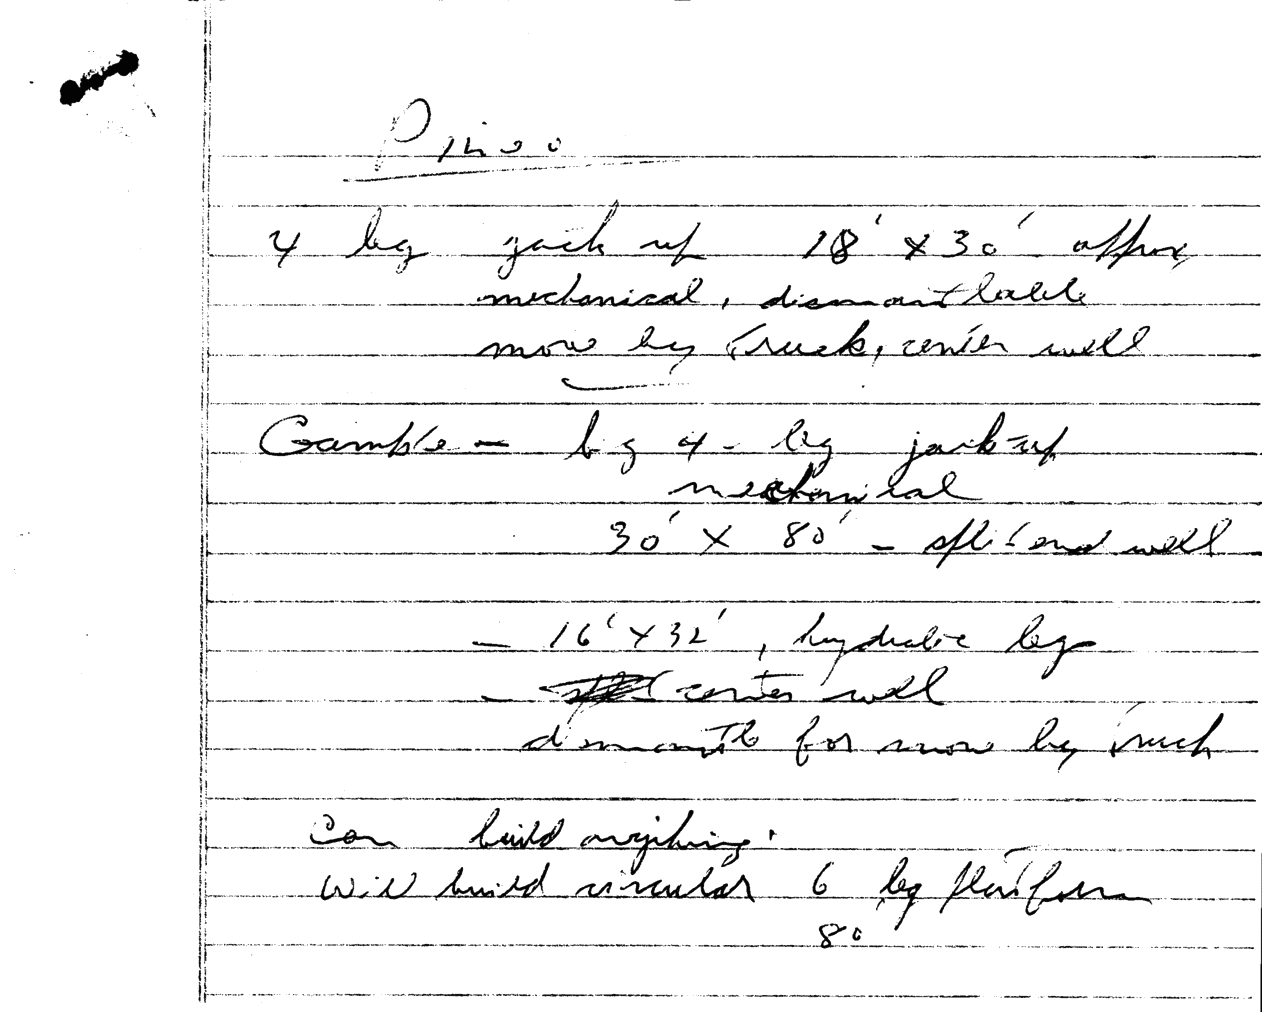 4 leg jack up 18' x 30' approx
mechanical, dismantlable
move by truck, center well
Gamble - big 4-leg jack-up
mechanical
30' x 80' - split end well
- 16' x 32', hydralic leg
- center well
dismantle for move by truck
Can build anything.
Will build circular 6 leg platform
80